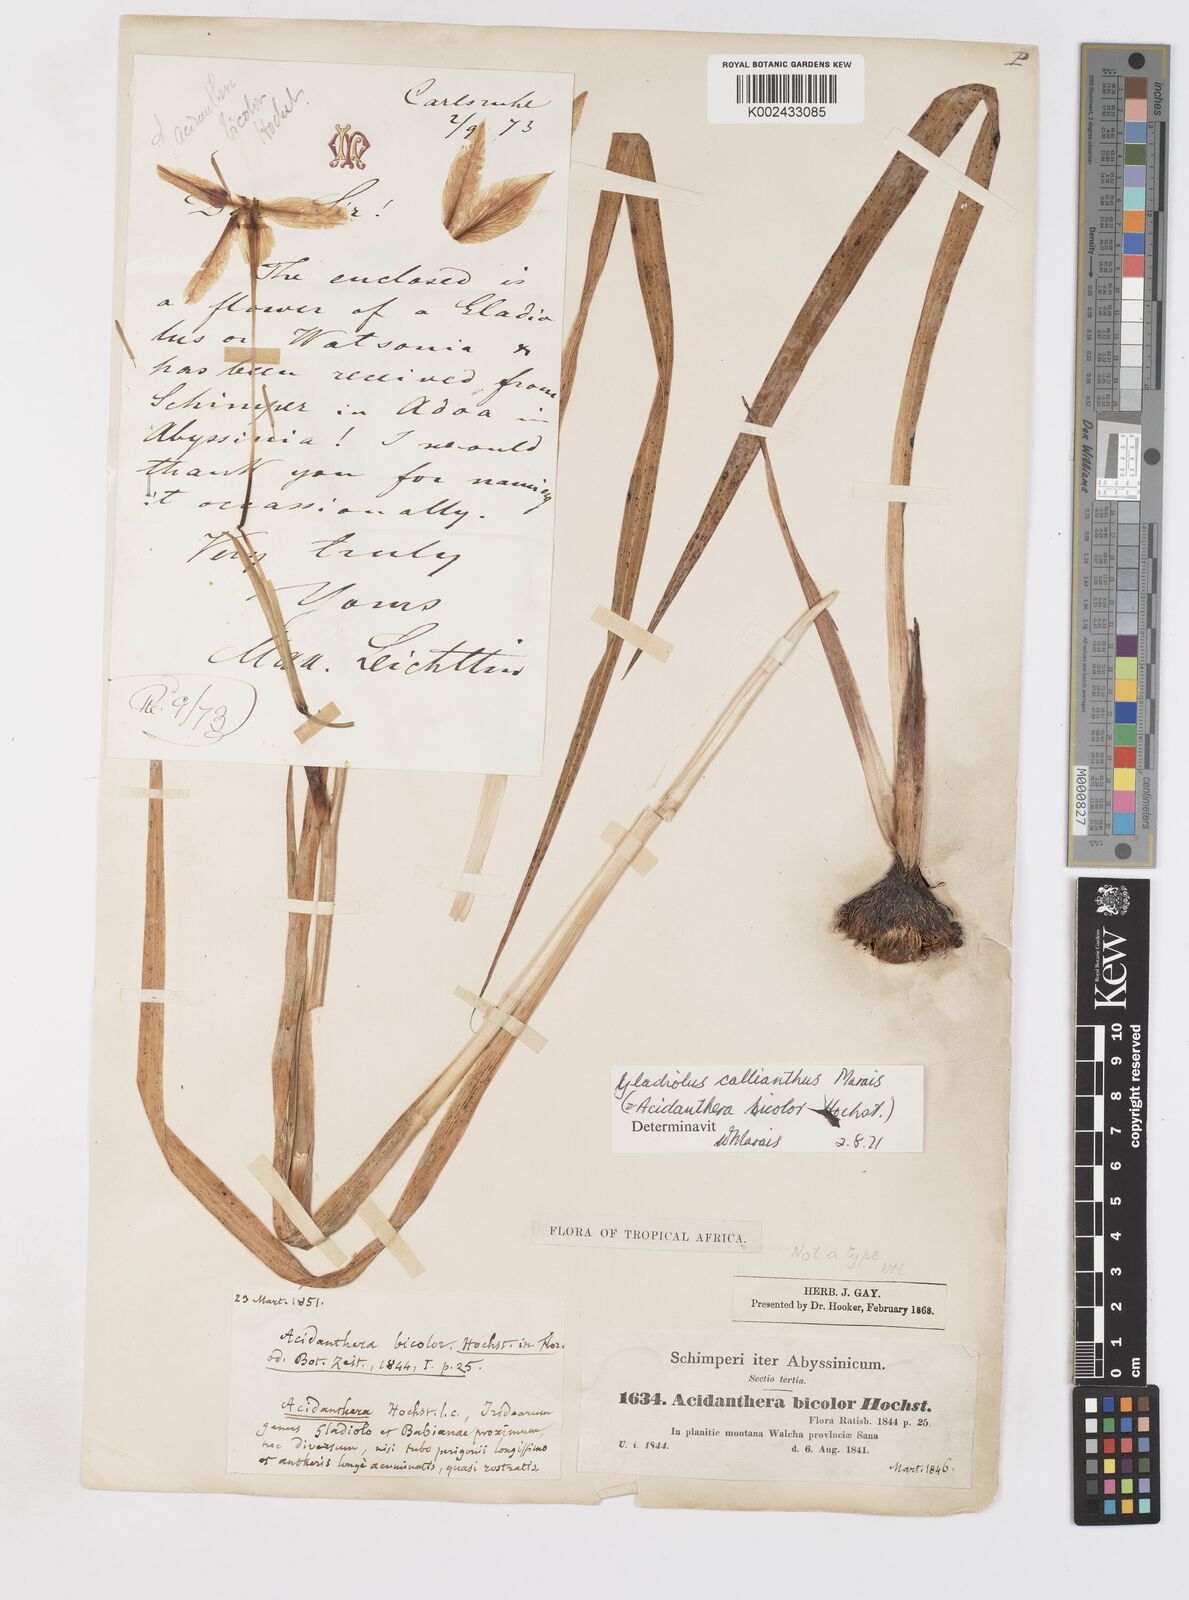 ROYAL BOTANIC GARDENS KEW
K002433085
Acidanthera
bicolor
Hochst.
Carlsruhe
2/9 73
Sir!
The enclosed is
a flower of a Gladio
lus or Watsonia &
has been received from
Schimper in Adoa in
Abyssinia! I would
thank you for naming
it ocassionally.
Very truly
Yours
Max. Leichtlin
Rc. 9/73
Gladiolus callianthus Marais
(= Acidanthera bicolor Hochst.)
Determinavit
W Marais 2.8.71
FLORA OF TROPICAL AFRICA.
Not a type
WM
HERB. J. GAY.
Presented by Dr. Hooker, February 1868.
23 Mart. 1851.
Acidanthera bicolor. Hochst. in flora
od. Bot. Zeit., 1844, I. p. 25.
Acidanthera Hochst. l.c., Iridearum
genus Gladiolo et Babianae proximum,
nec diversum, nisi tubo perigonii longissimo
et antheris longè acuminatis, quasi rostratis.
Schimperi iter Abyssinicum.
Sectio tertia.
1634. Acidanthera bicolor Hochst.
Flora Ratisb. 1844 p. 25.
In planitie montana Walcha provinciæ Sana
U. i. 1844. d. 6. Aug. 1841.
Mart. 1846.
Don Williams
M000827
centimeters
Royal Botanic Gardens
Kew
© copyright reserved
0 1 2 3 4 5 6 7 8 9 10
cm